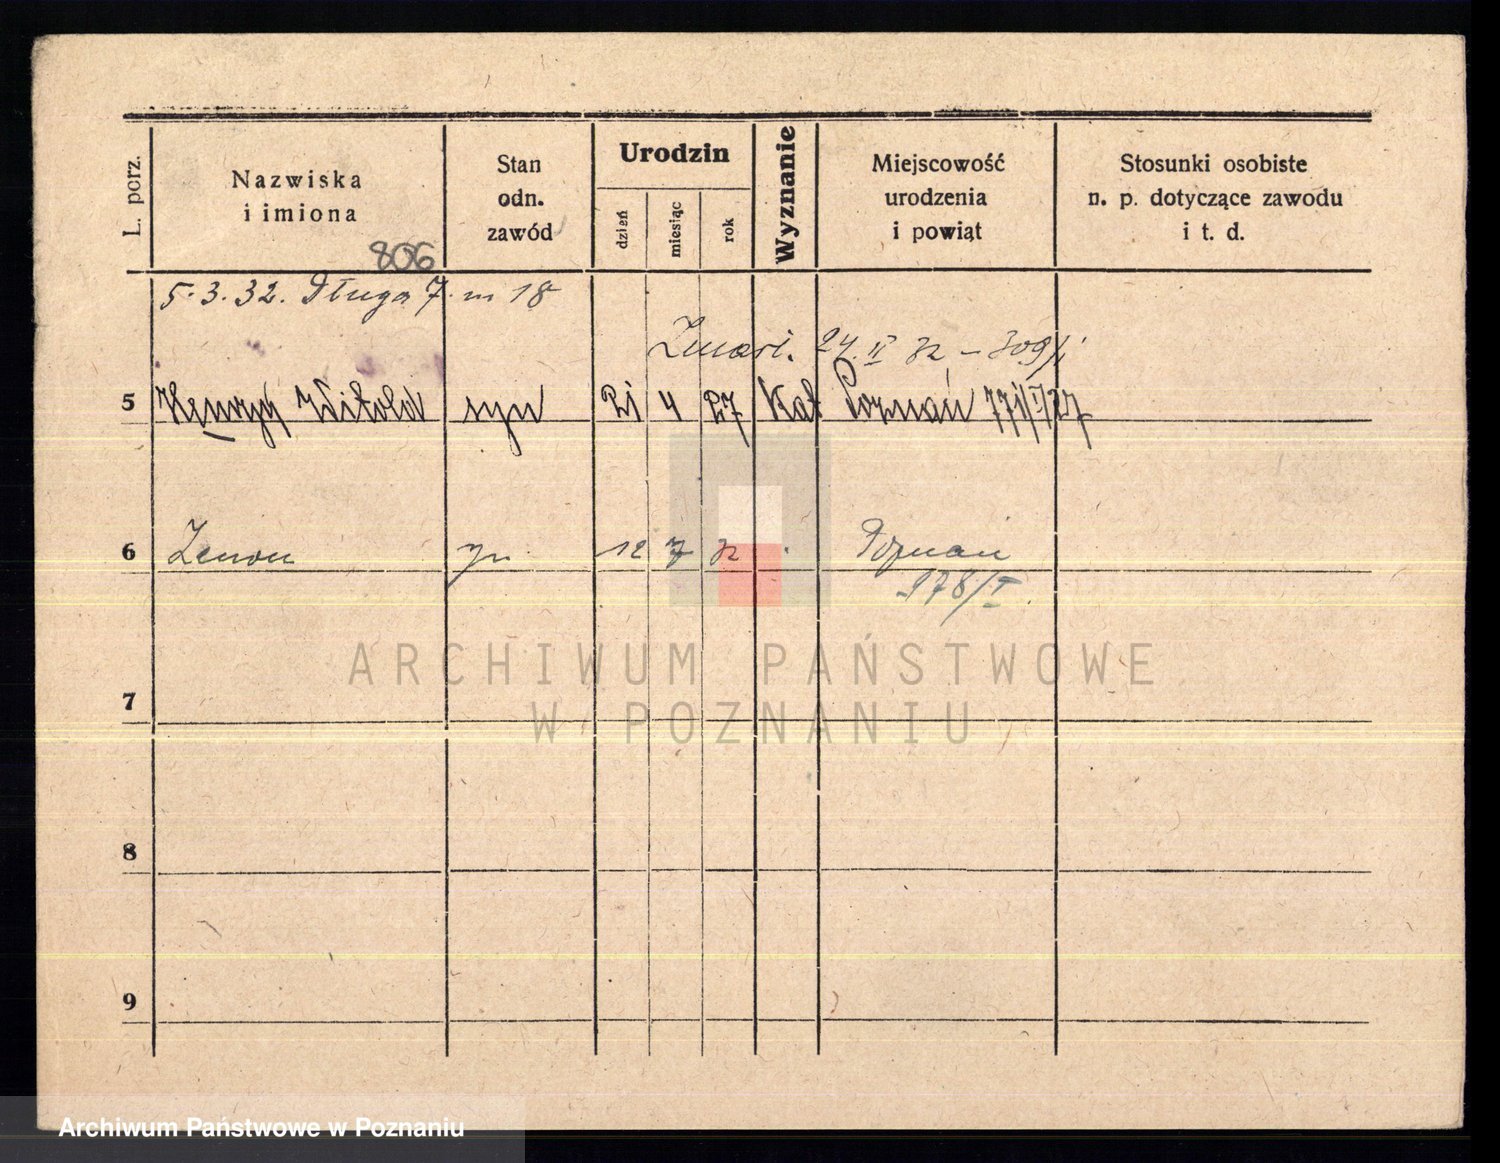 L. porz.
Nazwiska
i imiona
Stan
odn.
zawód
Urodzin
dzień
miesiąc
rok
Wyznanie
Miejscowość
urodzenia
i powiąt
Stosunki osobiste
n. p. dotyczące zawodu
i t. d.
806
5.3.32. Długa 7 m 18
Zmarł. 24. II 32 – 309/I
5 Henryk Witold syn 21 4 27 Kat Poznań
6 Zenon 12 7 32 Poznań
978/I
7
8
9
ARCHIWUM PAŃSTWOWE
W POZNANIU
Archiwum Państwowe w Poznaniu